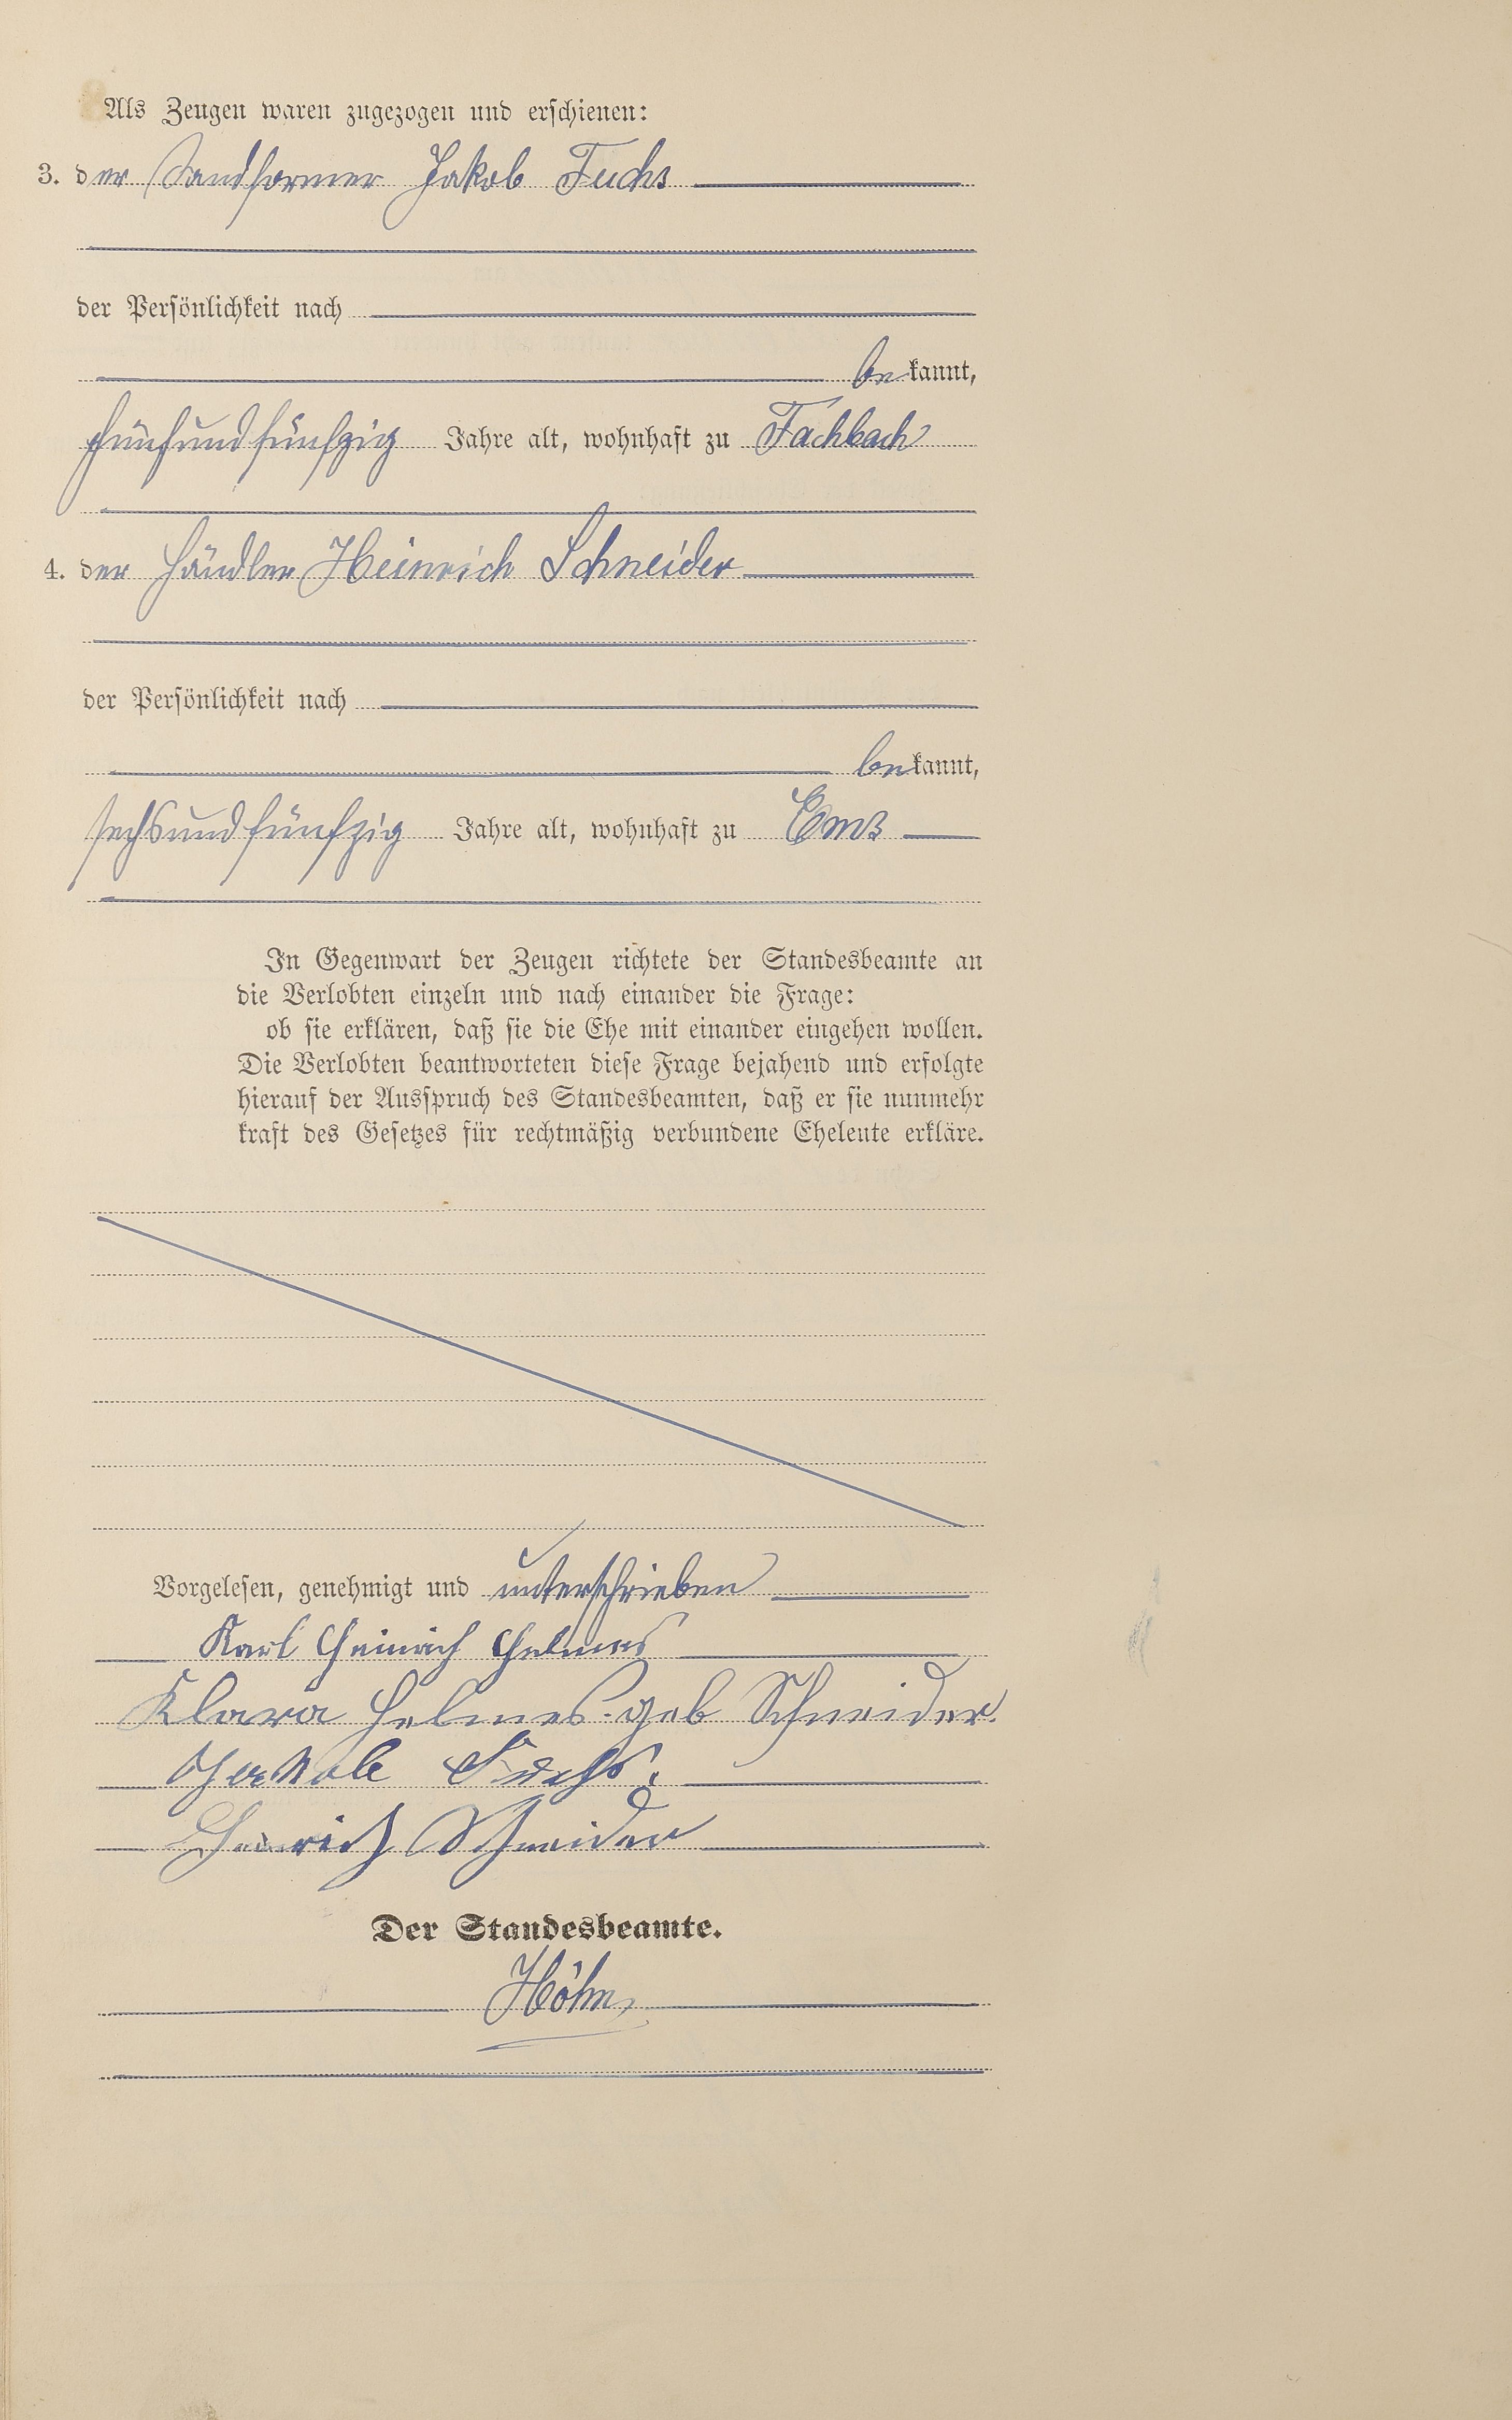 Als Zeugen waren zugezogen und erschienen:
3. der Sandformer Jakob Fuchs
der Persönlichkeit nach
bekannt,
fünfundfünfzig Jahre alt, wohnhaft zu Fachbach
4. der Händler Heinrich Schneider
der Persönlichkeit nach
bekannt,
sechsundfünfzig Jahre alt, wohnhaft zu Ems
In Gegenwart der Zeugen richtete der Standesbeamte an
die Verlobten einzeln und nach einander die Frage:
ob sie erklären, daß sie die Ehe mit einander eingehen wollen.
Die Verlobten beantworteten diese Frage bejahend und erfolgte
hierauf der Ausspruch des Standesbeamten, daß er sie nunmehr
kraft des Gesetzes für rechtmäßig verbundene Eheleute erkläre.
Vorgelesen, genehmigt und unterschrieben
Karl Heinrich Helmes
Klara Helmes geb Schneider.
Jakob Fuchs.
Heinrich Schneider
Der Standesbeamte.
Höhn